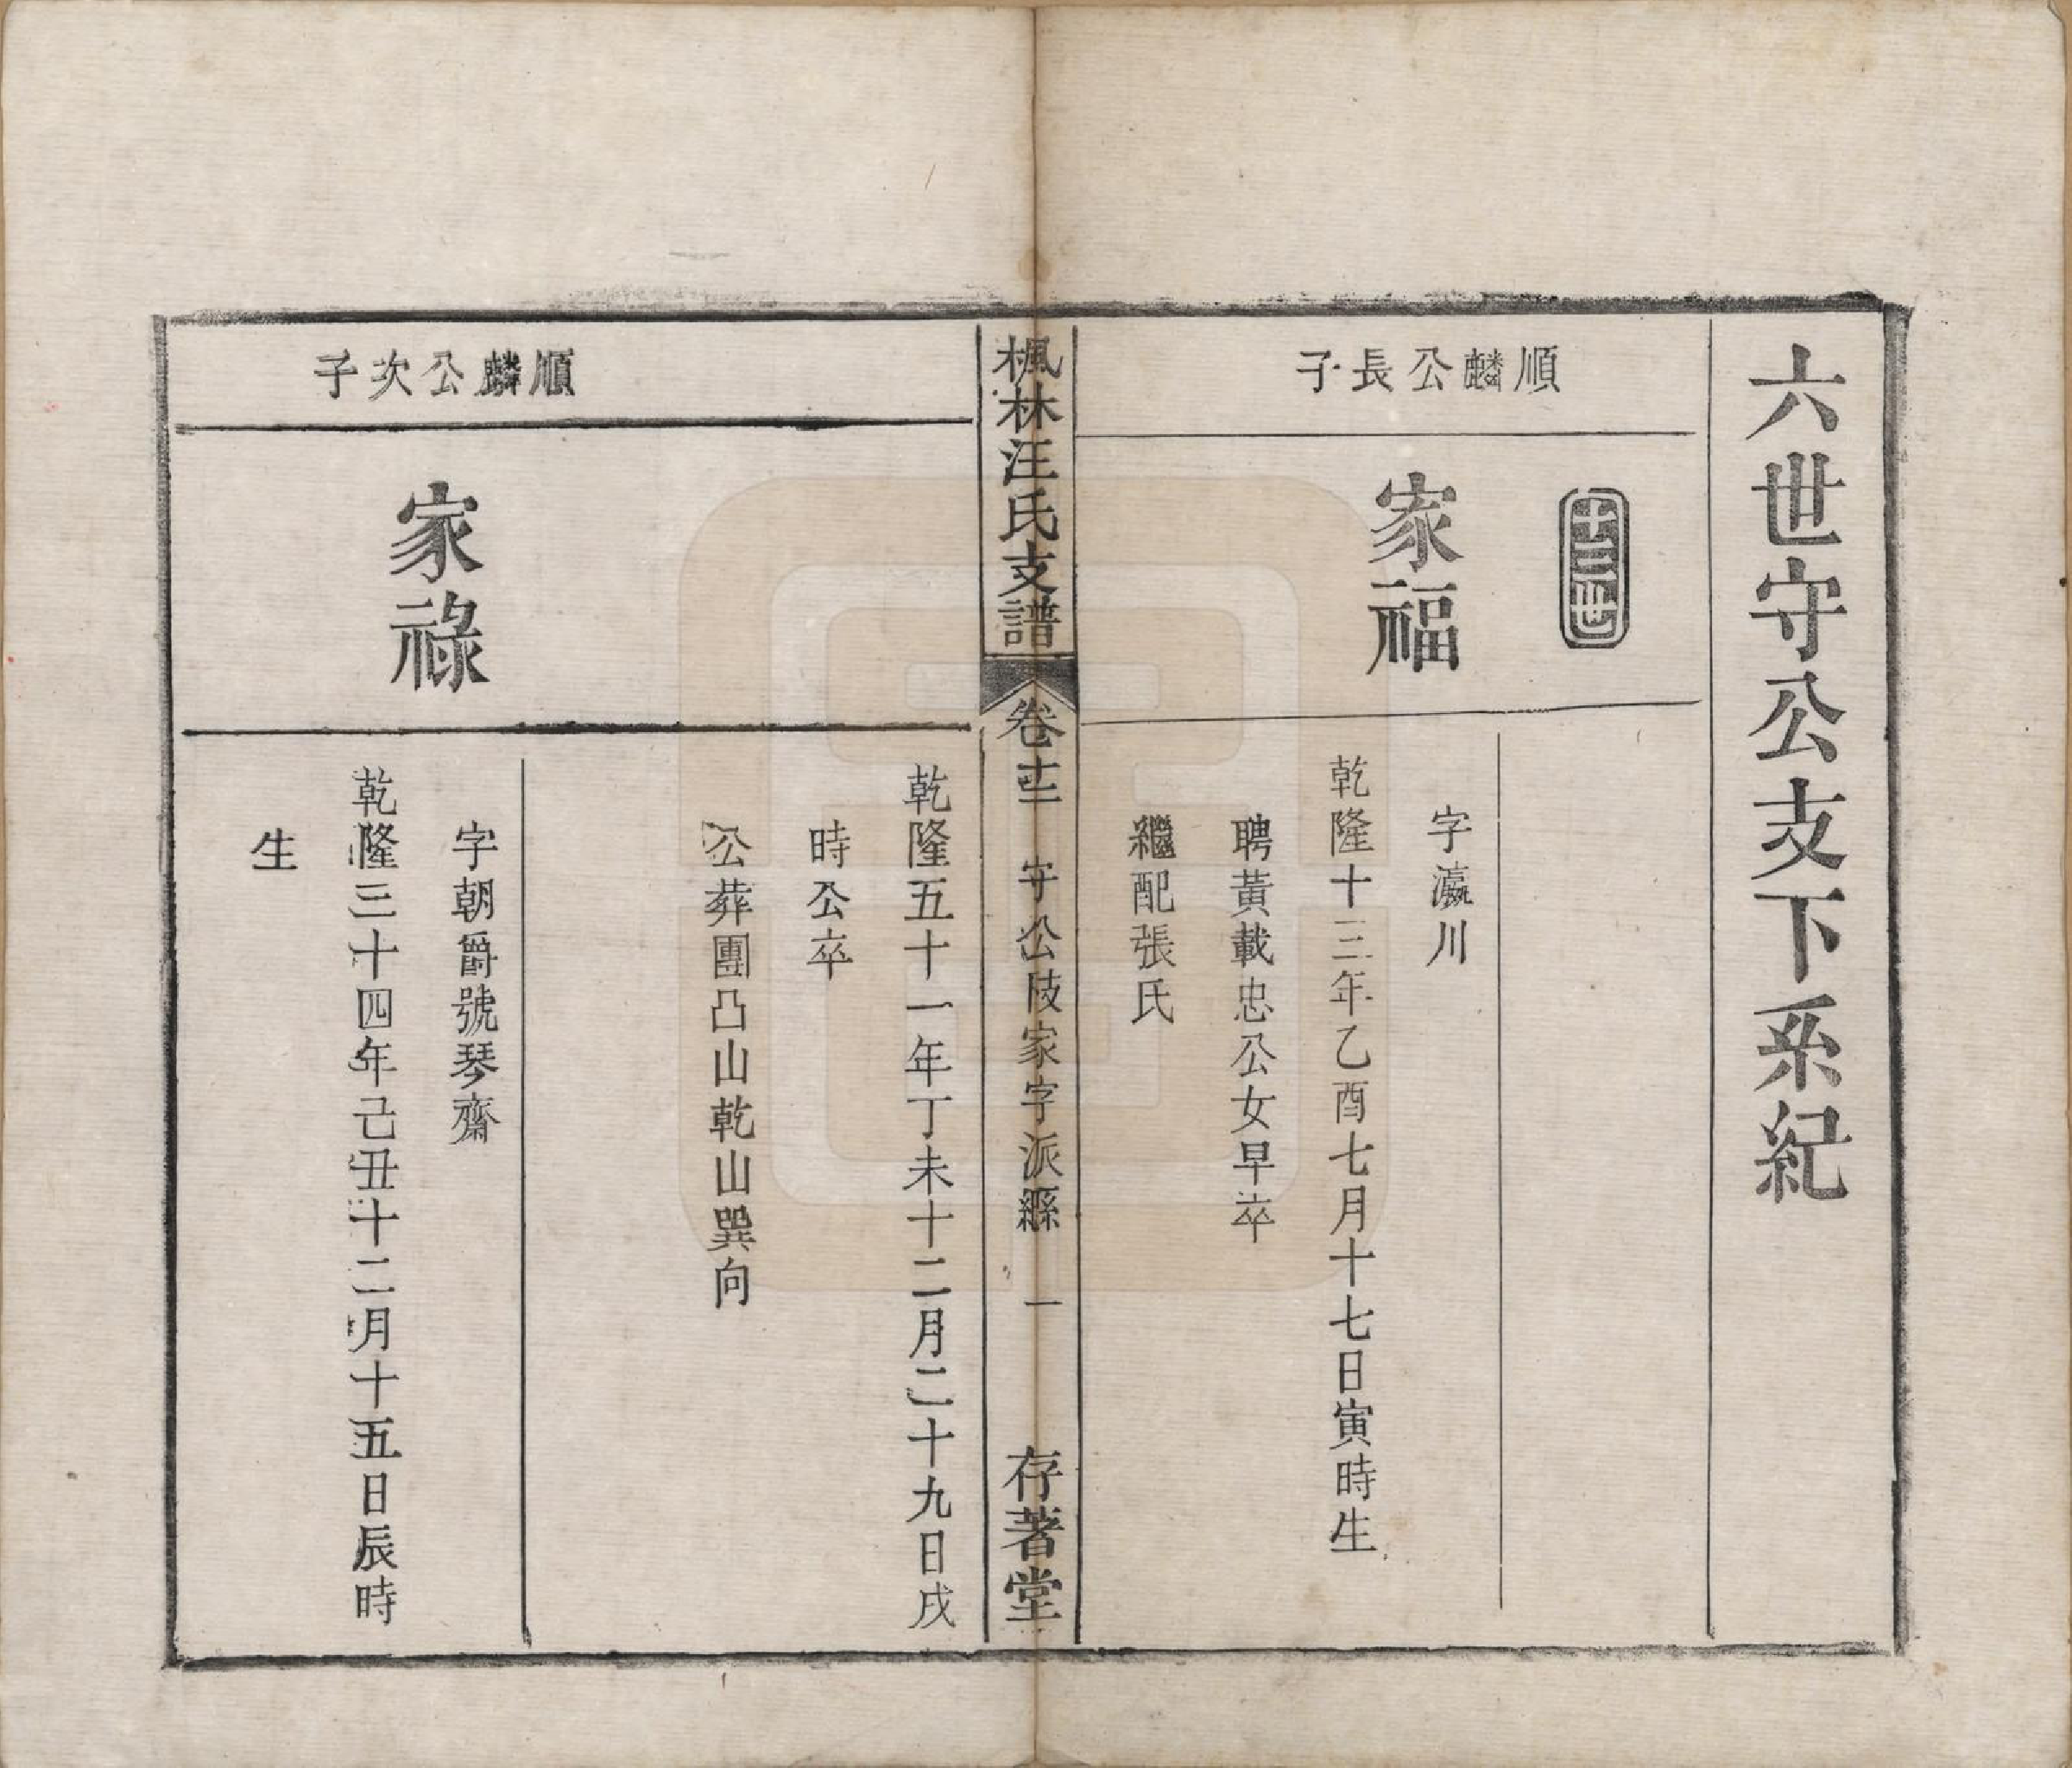 六世守公支下系紀
十二世
順麟公長子
家福
字瀛川
乾隆十三年乙酉七月十七日寅時生
聘黃載忠公女早卒
繼配張氏
楓林汪氏支譜
卷十二
守公歧家字派繇
一
存著堂
乾隆五十一年丁未十二月二十九日戌
時公卒
公葬團凸山乾山巽向
順麟公次子
家祿
字朝爵號琴齋
乾隆三十四年己丑十二月十五日辰時
生